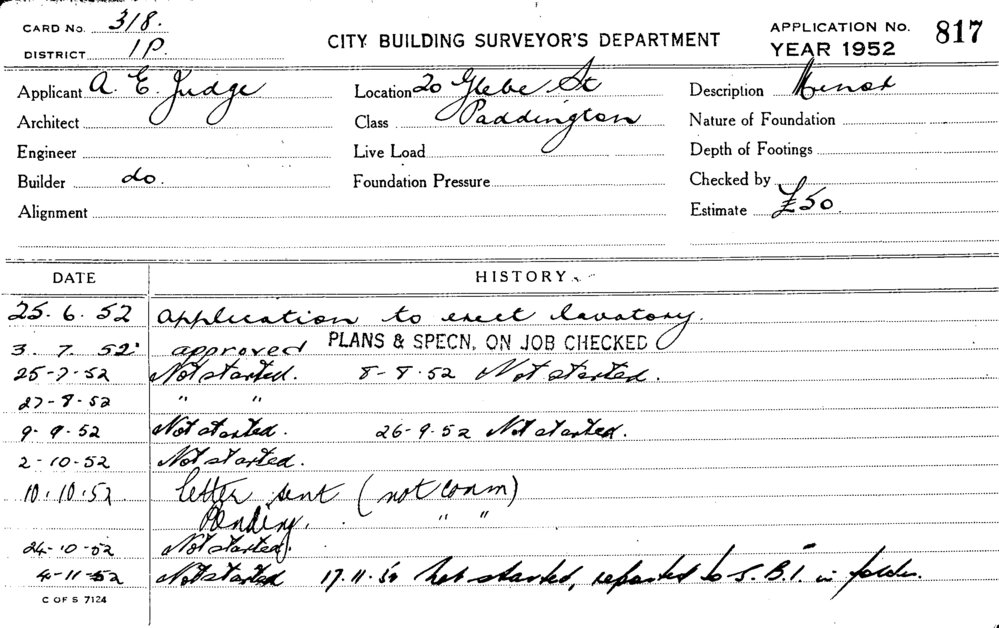 CARD No. 318.
DISTRICT 1P.
CITY BUILDING SURVEYOR'S DEPARTMENT
APPLICATION No. 817
YEAR 1952
Applicant A. E. Judge Location 20 Glebe St Description Minor
Architect Class Paddington Nature of Foundation
Engineer Live Load Depth of Footings
Builder do. Foundation Pressure Checked by
Alignment Estimate £50.
DATE HISTORY
25.6.52 Application to erect lavatory.
3.7.52 approved PLANS & SPECN. ON JOB CHECKED
25-7-52 Not started. 8-8.52 Not started.
27-8-52 " "
9-9.52 Not started. 26-9.52 Not started.
2-10-52 Not started.
10.10.52 letter sent (not comm)
Pending. " "
24-10-52 Not started.
4-11-52 Not started 17.11.52 Not started, reported to S.B.I. in folder.
C OF S 7124